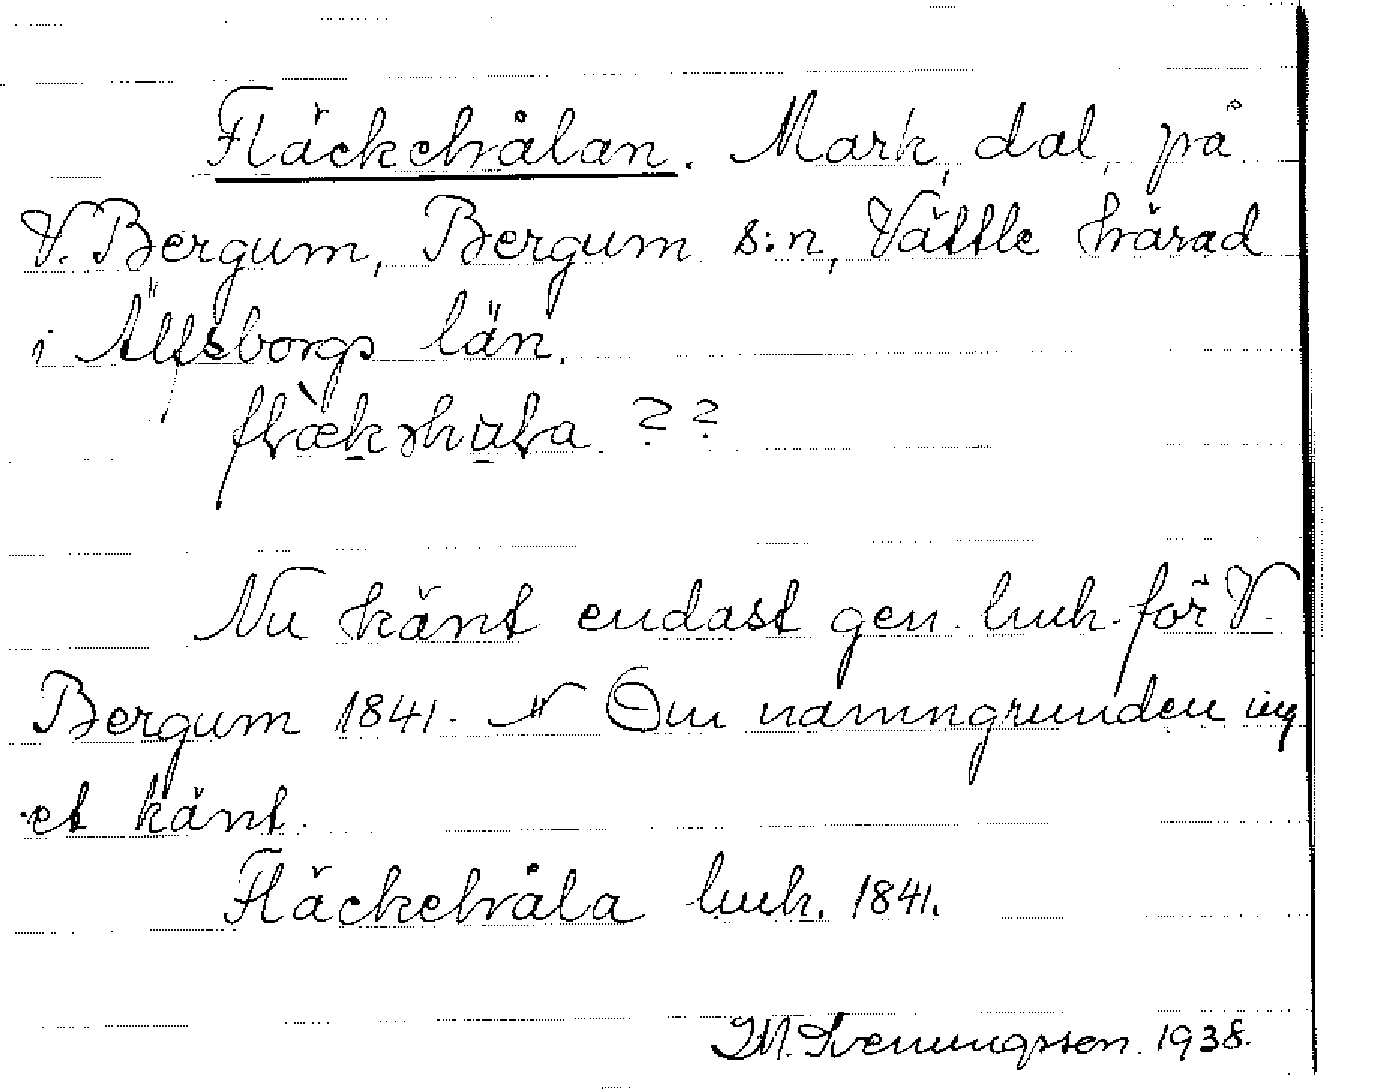 Fläckehålan. Mark, dal, på
V. Bergum, Bergum s:n, Vättle härad
i Älfsborgs län.
??
Nu känt endast gen. luck. för V.
Bergum 1841. Om namngrunden ing
et känt.
Fläckehåla luck. 1841.
1938.